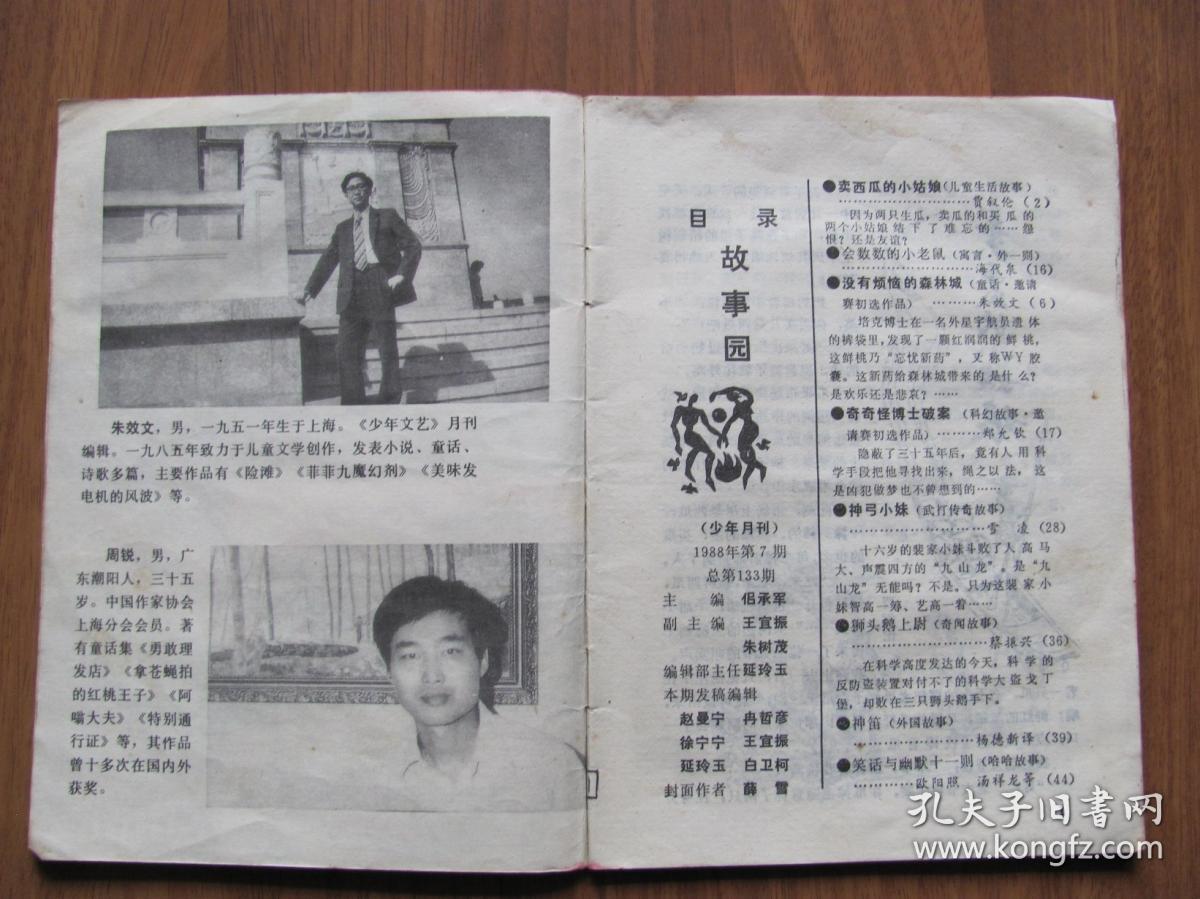 朱效文，男，一九五一年生于上海。《少年文艺》月刊
编辑。一九八五年致力于儿童文学创作，发表小说、童话、
诗歌多篇，主要作品有《险滩》《菲菲九魔幻剂》《美味发
电机的风波》等。
周锐，男，广
东潮阳人，三十五
岁。中国作家协会
上海分会会员。著
有童话集《勇敢理
发店》《拿苍蝇拍
的红桃王子》《阿
嗡大夫》《特别通
行证》等，其作品
曾十多次在国内外
获奖。
目录
故事园
（少年月刊）
1988年第7期
总第133期
主编 侣承军
副主编 王宜振
朱树茂
编辑部主任 延玲玉
本期发稿编辑
赵曼宁 冉哲彦
徐宁宁 王宜振
延玲玉 白卫柯
封面作者 薛雪
●卖西瓜的小姑娘（儿童生活故事）
………………………贾叙伦（2）
因为两只生瓜，卖瓜的和买瓜的
两个小姑娘结下了难忘的……怨
恨？还是友谊？
●会数数的小老鼠（寓言·外一则）
………………………海代泉（16）
●没有烦恼的森林城（童话·邀请
赛初选作品）………朱效文（6）
培克博士在一名外星宇航员遗体
的裤袋里，发现了一颗红润润的鲜桃，
这鲜桃乃“忘忧新药”，又称WY胶
囊。这新药给森林城带来的是什么？
是欢乐还是悲哀？……
●奇奇怪博士破案（科幻故事·邀
请赛初选作品）……郑允钦（17）
隐蔽了三十五年后，竟有人用科
学手段把他寻找出来，绳之以法，这
是凶犯做梦也不曾想到的……
●神弓小妹（武打传奇故事）
………………………雪凌（28）
十六岁的裴家小妹斗败了人高马
大、声震四方的“九山龙”。是“九
山龙”无能吗？不是。只为这裴家小
妹智高一筹、艺高一着……
●狮头鹅上尉（奇闻故事）
………………………蔡振兴（36）
在科学高度发达的今天，科学的
反防盗装置对付不了的科学大盗戈丁
堡，却败在三只狮头鹅手下。
●神笛（外国故事）
………………………杨德新译（39）
●笑话与幽默十一则（哈哈故事）
…………欧阳照 汤祥龙等（44）
孔夫子旧书网
www.kongfz.com